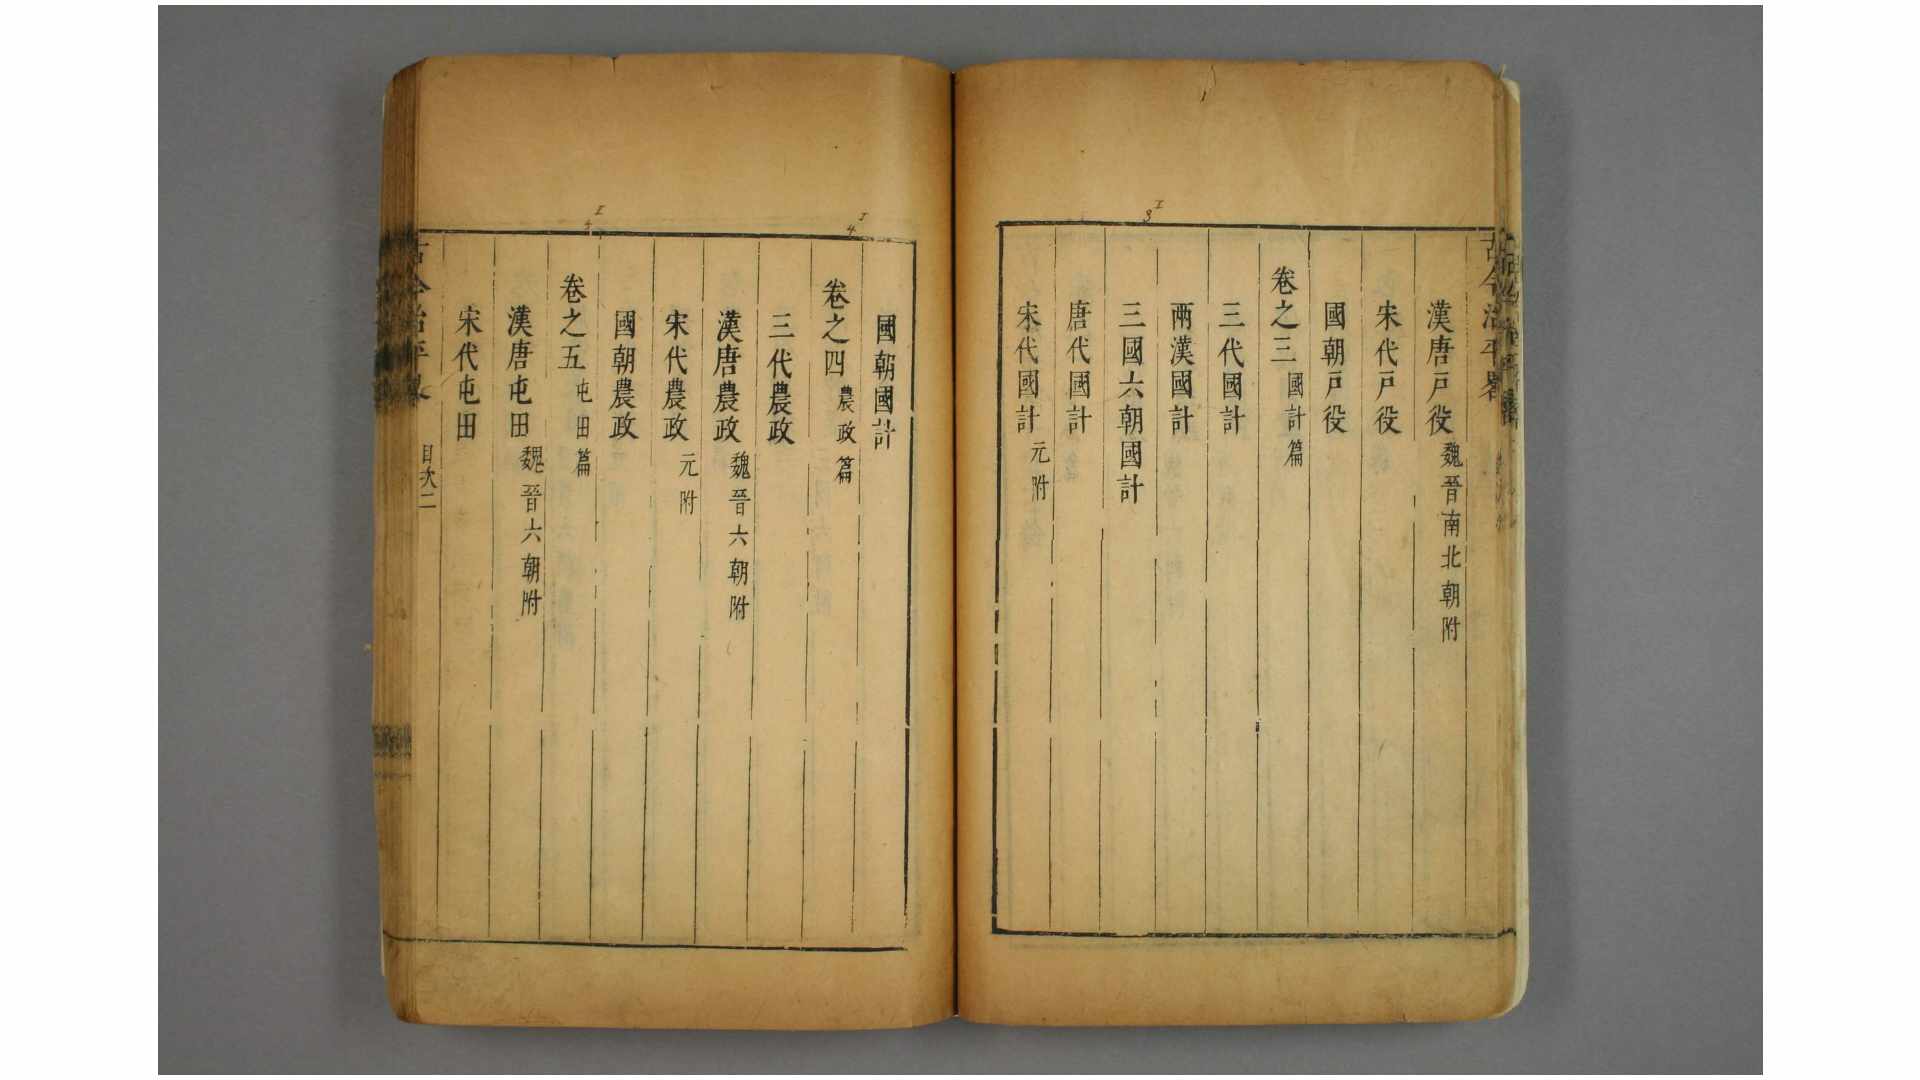 漢唐戸役 魏晉南北朝附
宋代戸役
國朝戸役
卷之三 國計篇
三代國計
兩漢國計
三國六朝國計
唐代國計
宋代國計 元附
國朝國計
卷之四 農政篇
三代農政
漢唐農政 魏晉六朝附
宋代農政 元附
國朝農政
卷之五 屯田篇
漢唐屯田 魏晉六朝附
宋代屯田
古今治平畧 目次二